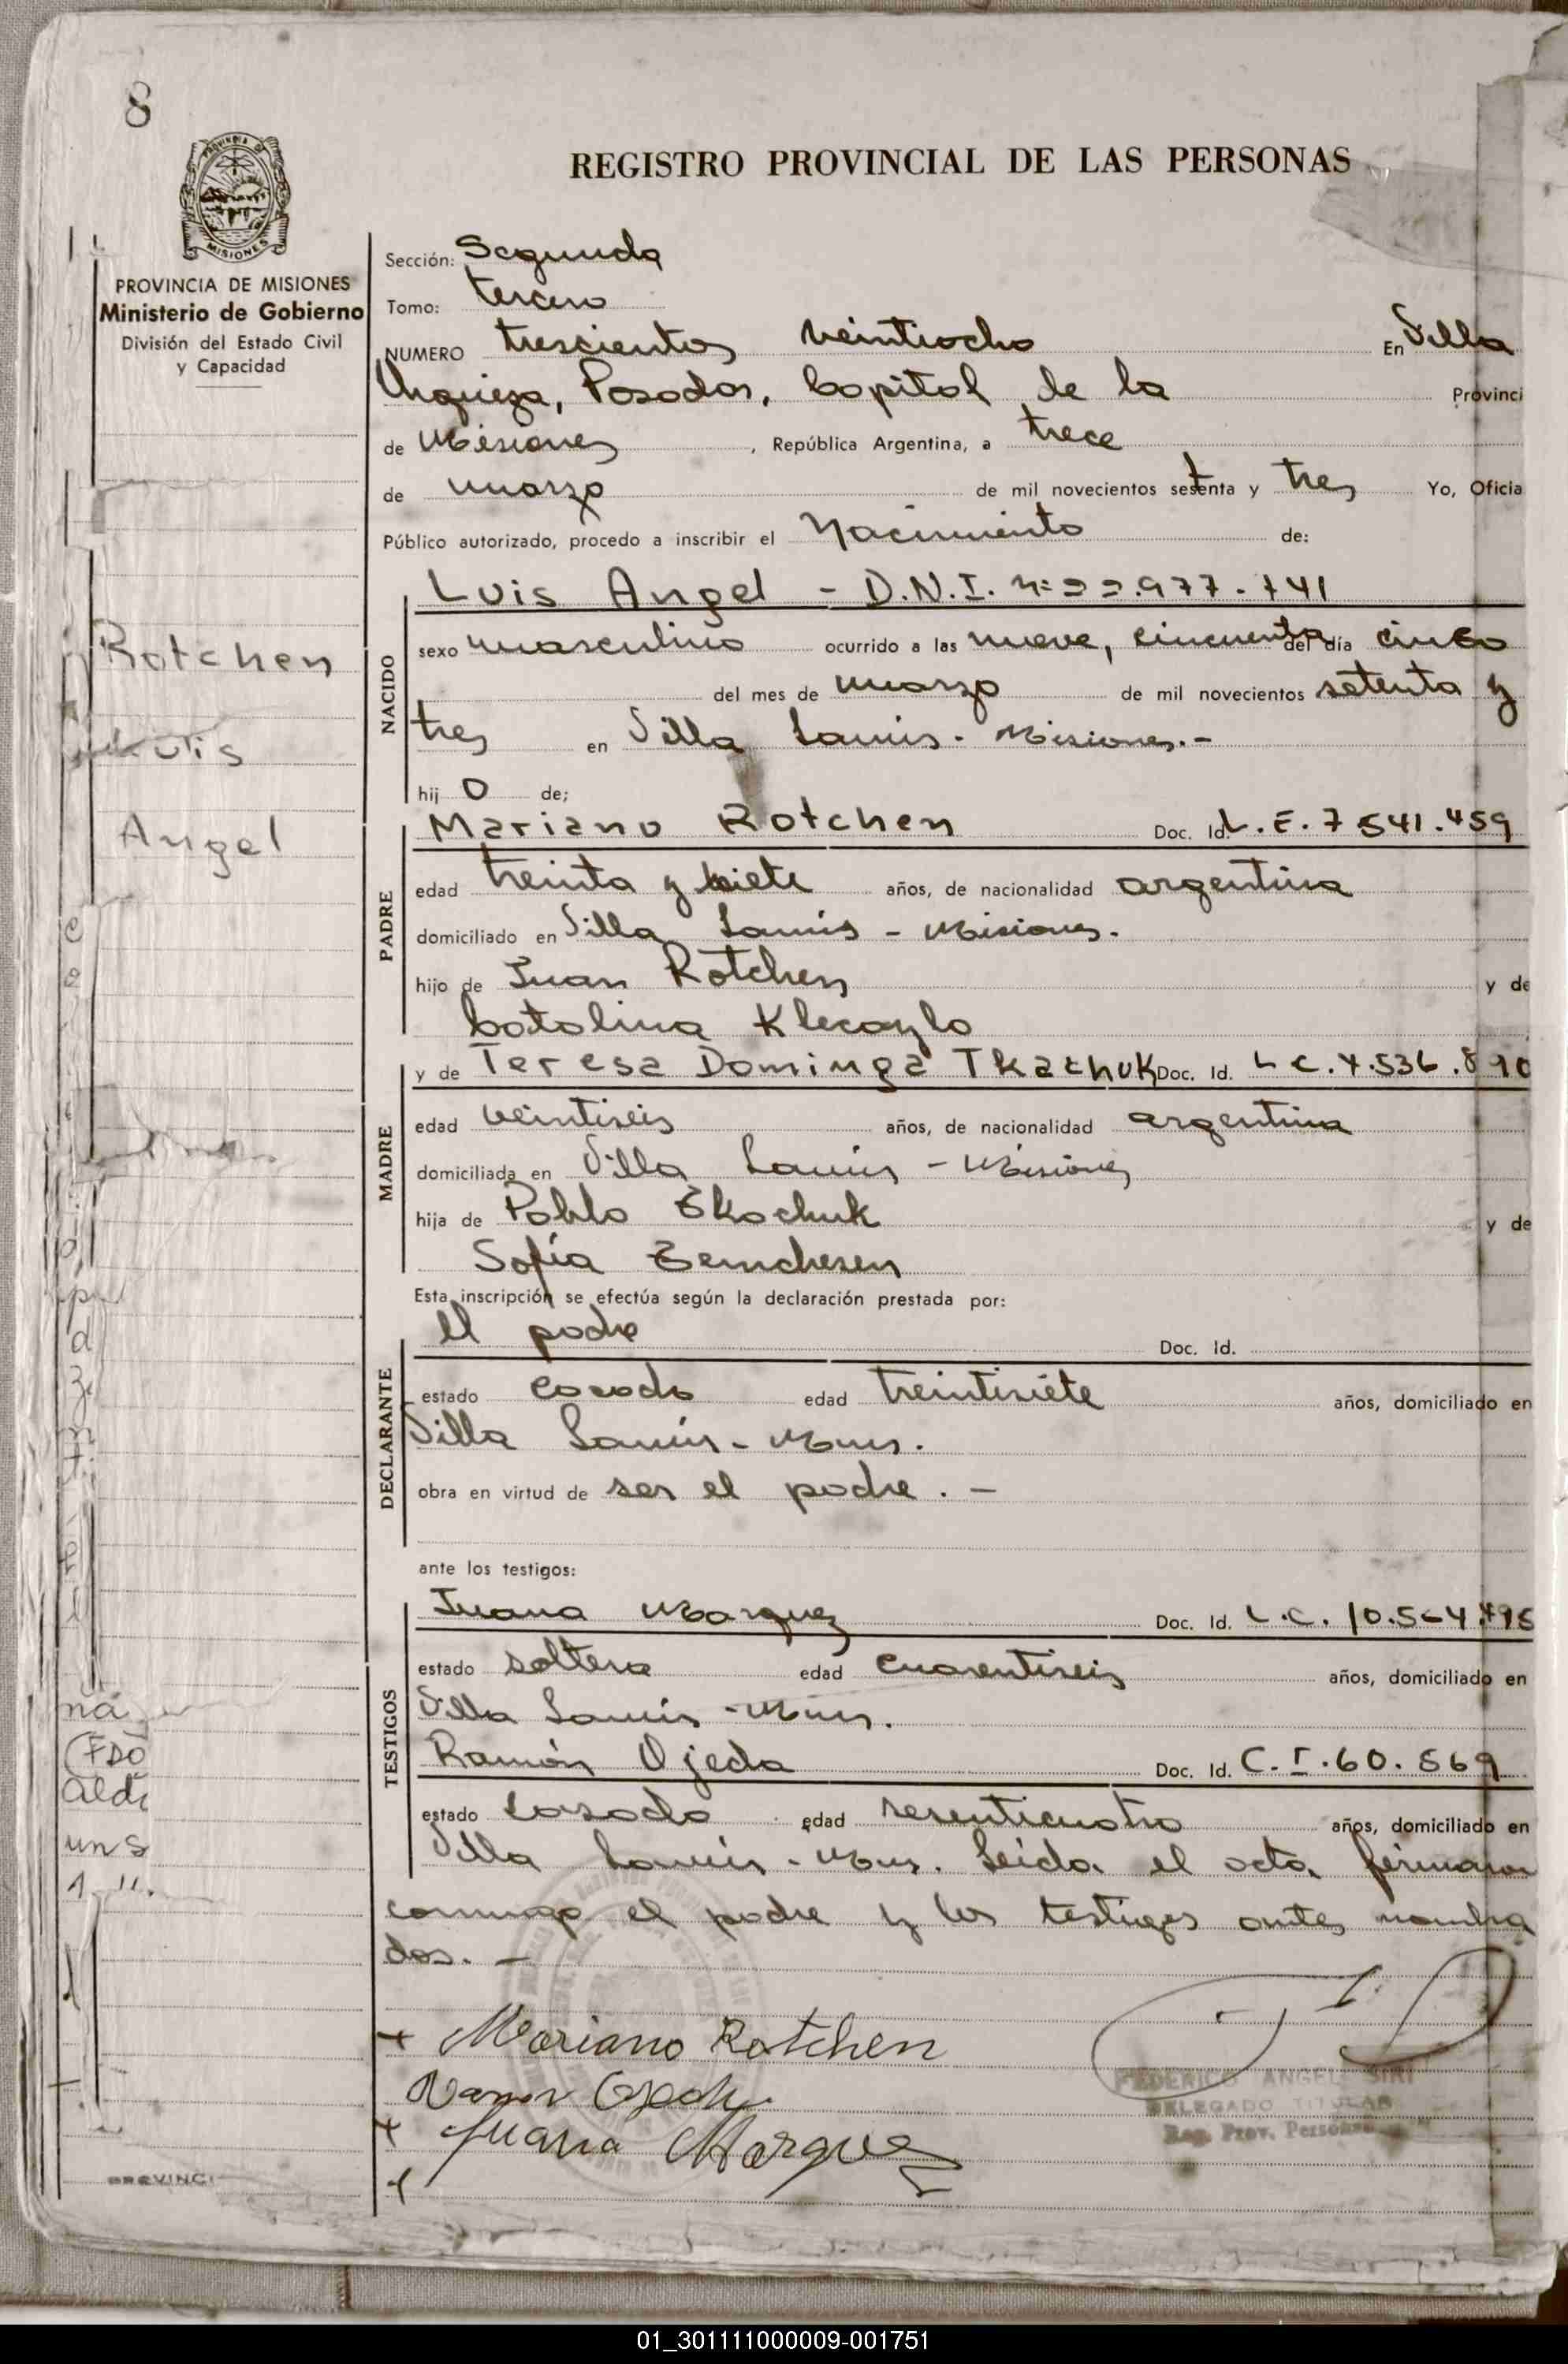 8
REGISTRO PROVINCIAL DE LAS PERSONAS
PROVINCIA DE
MISIONES
PROVINCIA DE MISIONES
Ministerio de Gobierno
División del Estado Civil
y Capacidad
Rotchen
Luis
Angel
Sección: Segunda
Tomo: tercero
NUMERO trescientos veintiocho En Villa
Urquiza, Posadas, Capital de la Provinci
de Misiones, República Argentina, a trece
de marzo de mil novecientos setenta y tres Yo, Oficia
Público autorizado, procedo a inscribir el Nacimiento de:
NACIDO
Luis Angel - D.N.I. Nº 22.977.741
sexo masculino ocurrido a las nueve, cincuenta del día cinco
del mes de marzo de mil novecientos setenta y
tres en Villa Lanús - Misiones.-
hij o de;
PADRE
Mariano Rotchen Doc. Id. L.E. 7 541.459
edad treinta y siete años, de nacionalidad argentina
domiciliado en Villa Lanús - Misiones.
hijo de Juan Rotchen y de
Catalina Klecaylo
MADRE
y de Teresa Dominga Tkachuk Doc. Id. L C. 4.536.890
edad veintiseis años, de nacionalidad argentina
domiciliada en Villa Lanús - Misiones
hija de Pablo Tkachuk y de
Sofía Zemchesen
Esta inscripción se efectúa según la declaración prestada por:
DECLARANTE
El padre Doc. Id.
estado casado edad treintisiete años, domiciliado en
Villa Lanús - Mnes.
obra en virtud de ser el padre. -
ante los testigos:
TESTIGOS
Juana Marquez Doc. Id. L.C. 10.564.495
estado soltera edad cuarentiseis años, domiciliado en
Villa Lanús - Mnes.
Ramón Ojeda Doc. Id. C.I. 60.569
estado casado edad sesenticuatro años, domiciliado en
Villa Lanús - Mnes. Leída el acta firmaron
conmigo el padre y los testigos antes nombra
dos. -
Mariano Rotchen
Ramon Ojeda
Juana Marquez
FEDERICO ANGEL SIRI
DELEGADO TITULAR
Reg. Prov. Personas
01_301111000009-001751